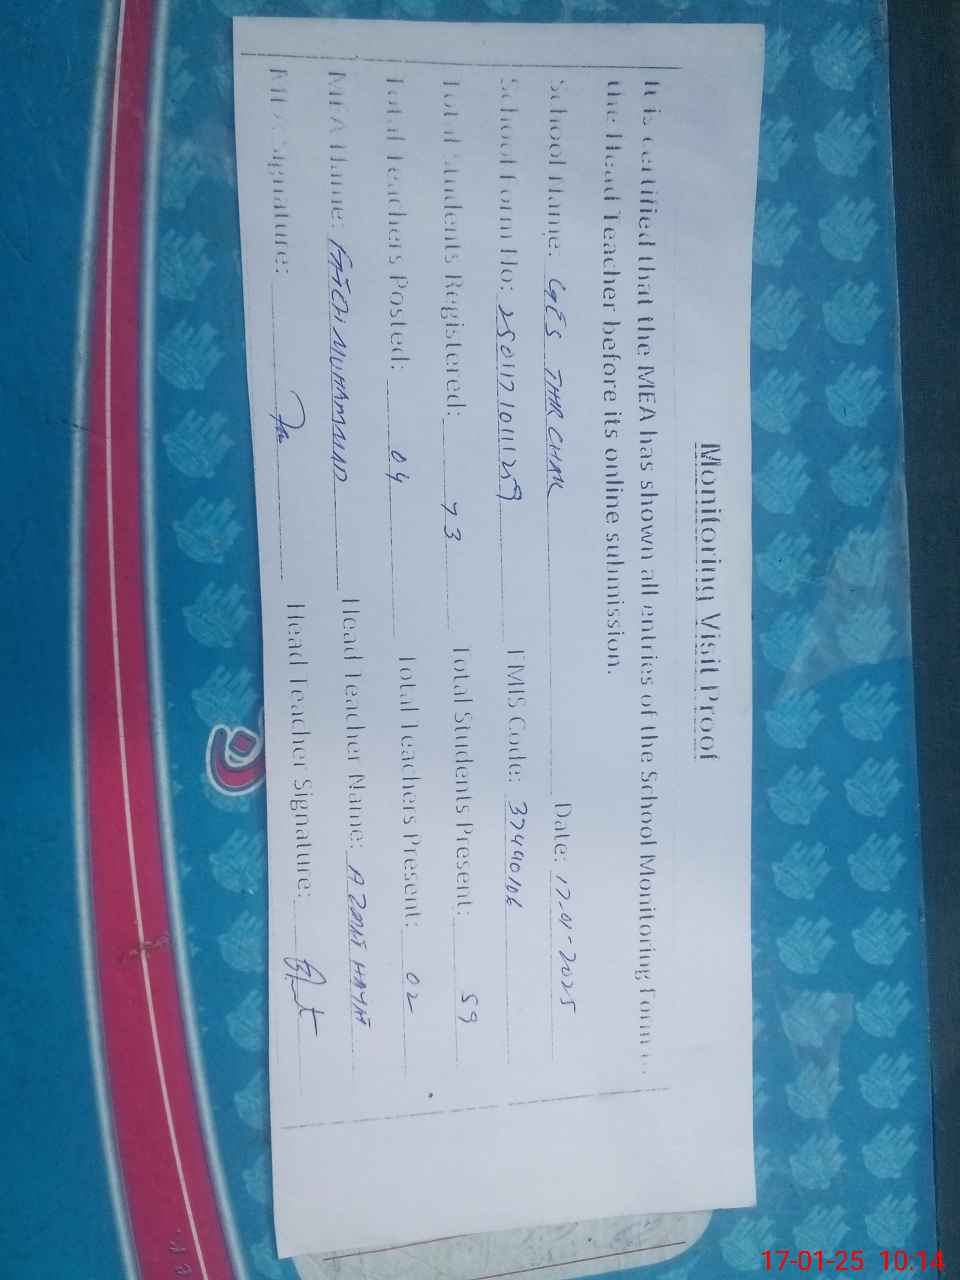 Monitoring Visit Proof
It is certified that the MEA has shown all entries of the School Monitoring Form to
the Head Teacher before its online submission.
School Name: GES THAR CHAK Date: 17-01-2025
School Form No: 2501171011129 EMIS Code: 37440106
Total Students Registered: 73 Total Students Present: 59
Total Teachers Posted: 04 Total Teachers Present: 02
MEA Name: FATEH MUHAMMAD Head Teacher Name: AZMAT HAYAT
MEA Signature: Head Teacher Signature:
17-01-25 10:14